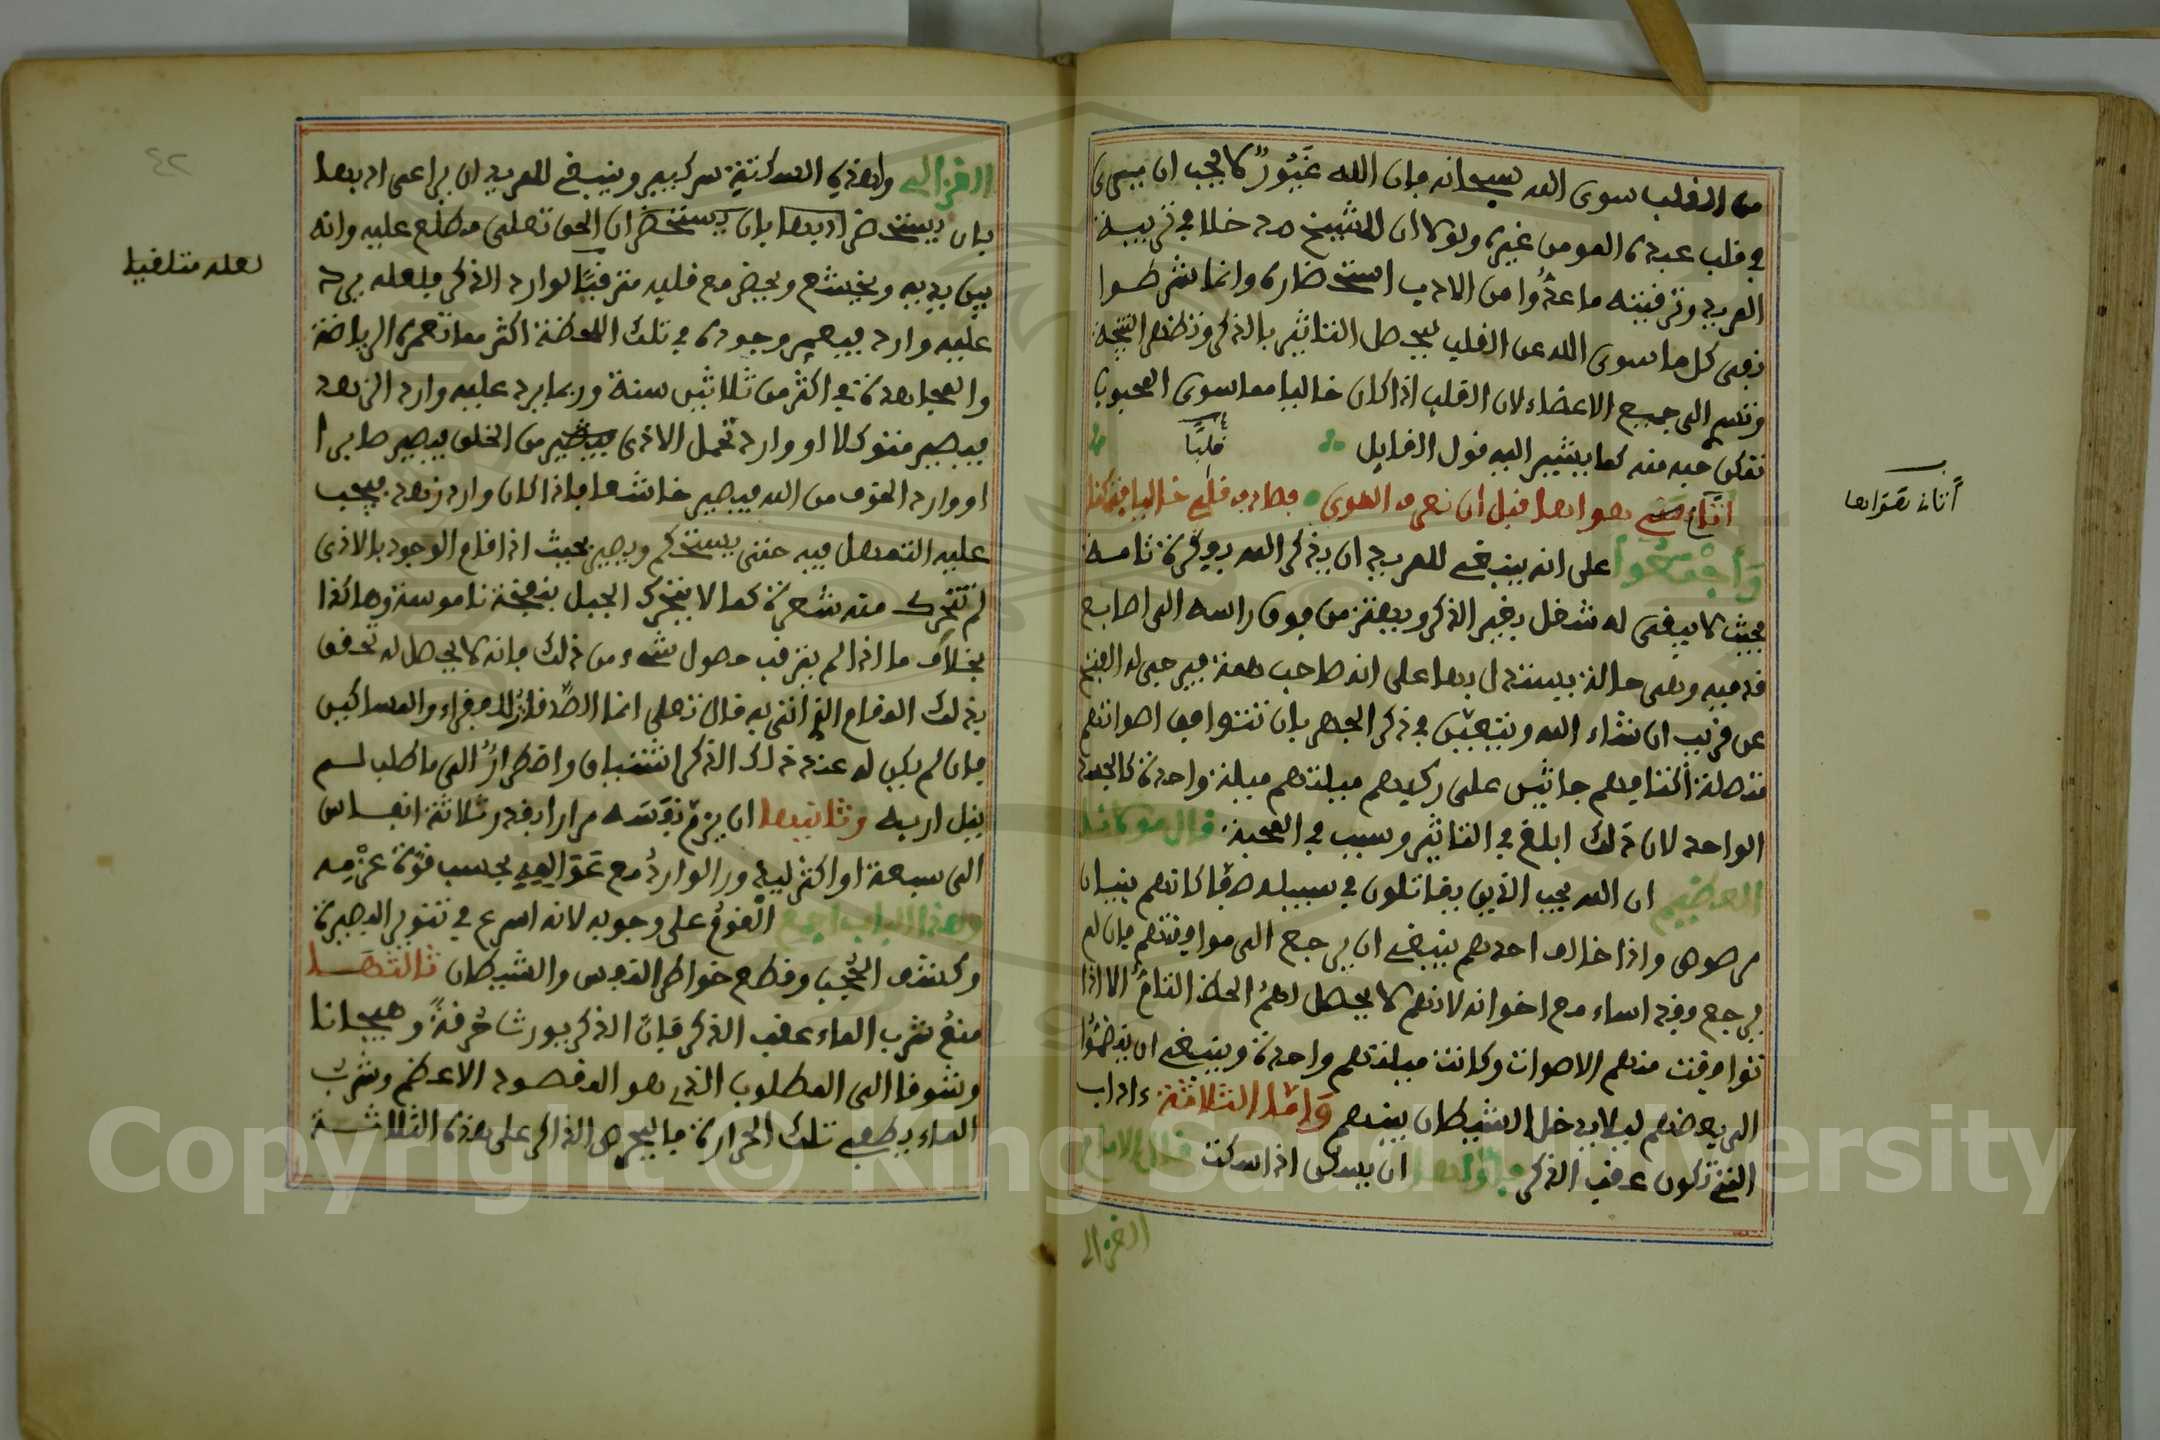 من القلب سوى الله سبحانه فإن الله غَيُورٌ لا يحب ان يبقى
في قلب عبده المومن غيره ولولا ان للشيخ مدخلا في تربية
المريد وترقيته ما عدُّوا من الادب استحضاره وانما شرطوا
نفى كل ما سوى الله عن القلب ليحصل التاثير بالذكر وتظهر النتيجة
وتسرى الى جميع الاعضاء لان القلب اذا كان خاليا مما سوى المحبوب
تمكن حبه منه كما يشير اليه قول القايل
قلبًا
اتاني هواها قبل ان نعرف الهوى فصادف قلبي خاليا فتمكنا
وَأجْمَعُوا على انه ينبغي للمريد ان يذكر الله بقوة تامة
بحيث لا يبقى له شغل بغير الذكر ويهتز من فوق راسه الى اصابع
قدميه وهى حالة يستدل بها على انه صاحب همة فيرجى له الفتح
عن قريب ان شاء الله ويتعين في ذكر الجهر بان تتوافق اصواتهم
متصلة اكتافهم جاثين على ركبهم قبلتهم قبلة واحدة كالجسد
الواحد لان ذلك ابلغ في التاثير وسبب في المحبة قال مولانا
العظيم ان الله يحب الذين يقاتلون في سبيله صفا كانهم بنيان
مرصوص واذا خالف احدهم ينبغي ان يرجع الى موافقتهم فإن لم
يرجع وقد اساء مع اخوانه لانهم لا يحصل لهمُ الحظ التامُّ الا اذا
توافقت منهم الاصوات وكانت قبلتهم واحدة وينبغي ان ينضمُّوا
الى بعضهم ليلا يدخل الشيطان بينهم وَامّا الثلاثة ءاداب
التي تكون عقب الذكر فاولها ان يسكن اذا سكت قال الامام
الغزالي
أتانى هواها
الغزالى ولهذه السكتة سر كبير وينبغي للمريد ان يراعى ادبها
بان يستحضر ادبها بان يستحضر ان الحق تعلى مطلع عليه وانه
بين يديه ويخشع ويحضر مع قلبه مترقبًا لوارد الذكر فلعله يرد
عليه وارد فيعمر وجوده في تلك اللحظة اكثر مما تعمره الرياضة
والمجاهدة في اكثر من ثلاثين سنة وربما يرد عليه وارد الزهد
فيصير متوكلا او وارد تحمل الاذى من الخلق فيصير صابرا
او وارد الخوف من الله فيصير خاشعا فإذا كان وارد زهد فيجب
عليه التمهل فيه حتى يستحكم ويصير بحيث اذا قام الوجود بالاذى
لم تتحرك منه شعرة كما لا يتحرك الجبل بنفخة ناموسة وهاكذا
بخلاف ما اذا لم يترقب حصول شىء من ذلك فإنه لا يحصل له تحقق
بذلك المقام الذي اتى به قال تعلى انما الصدقات للفقراء والمساكين
فإن لم يكن له عند ذلك الذكر اشتياق واضطرارٌ الى ما طلب لم
ينل اربه وثانيها ان يزمّ نفسَه مرارا بقدر ثلاثة انفاس
الى سبعة او اكثر ليدور الواردُ مع عَوَالِمِهِ بحسب قوة عزْمِه
وهذا الباب اجمع القوم على وجوبه لانه اسرع في تنوير البصيرة
وكشف الحُجُب وقطع خواطر النفس والشيطان ثالثها
منعُ شرب الماء عقب الذكر فإن الذكر يورث حُرقةً وهيجانا
وشوقا الى المطلوب الذي هو المقصود الاعظم وشربُ
الماء يطفي تلك الحرارة فاليحرص الذاكر على هذه الثلاثة
لعله متلقيا
٤٢
Copyright © King Saud University